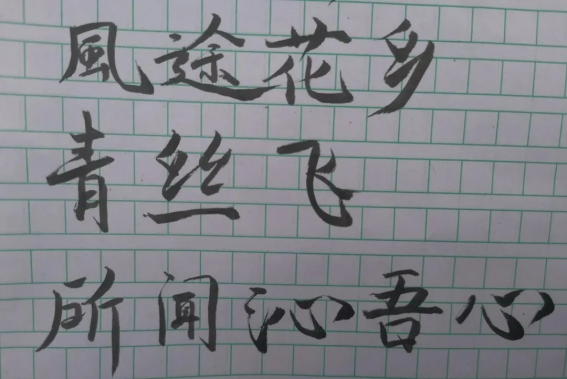 風途花乡
青丝飞
所闻沁吾心